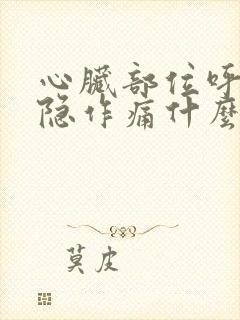 心臟部位呼
隐作痛什麼
莫皮